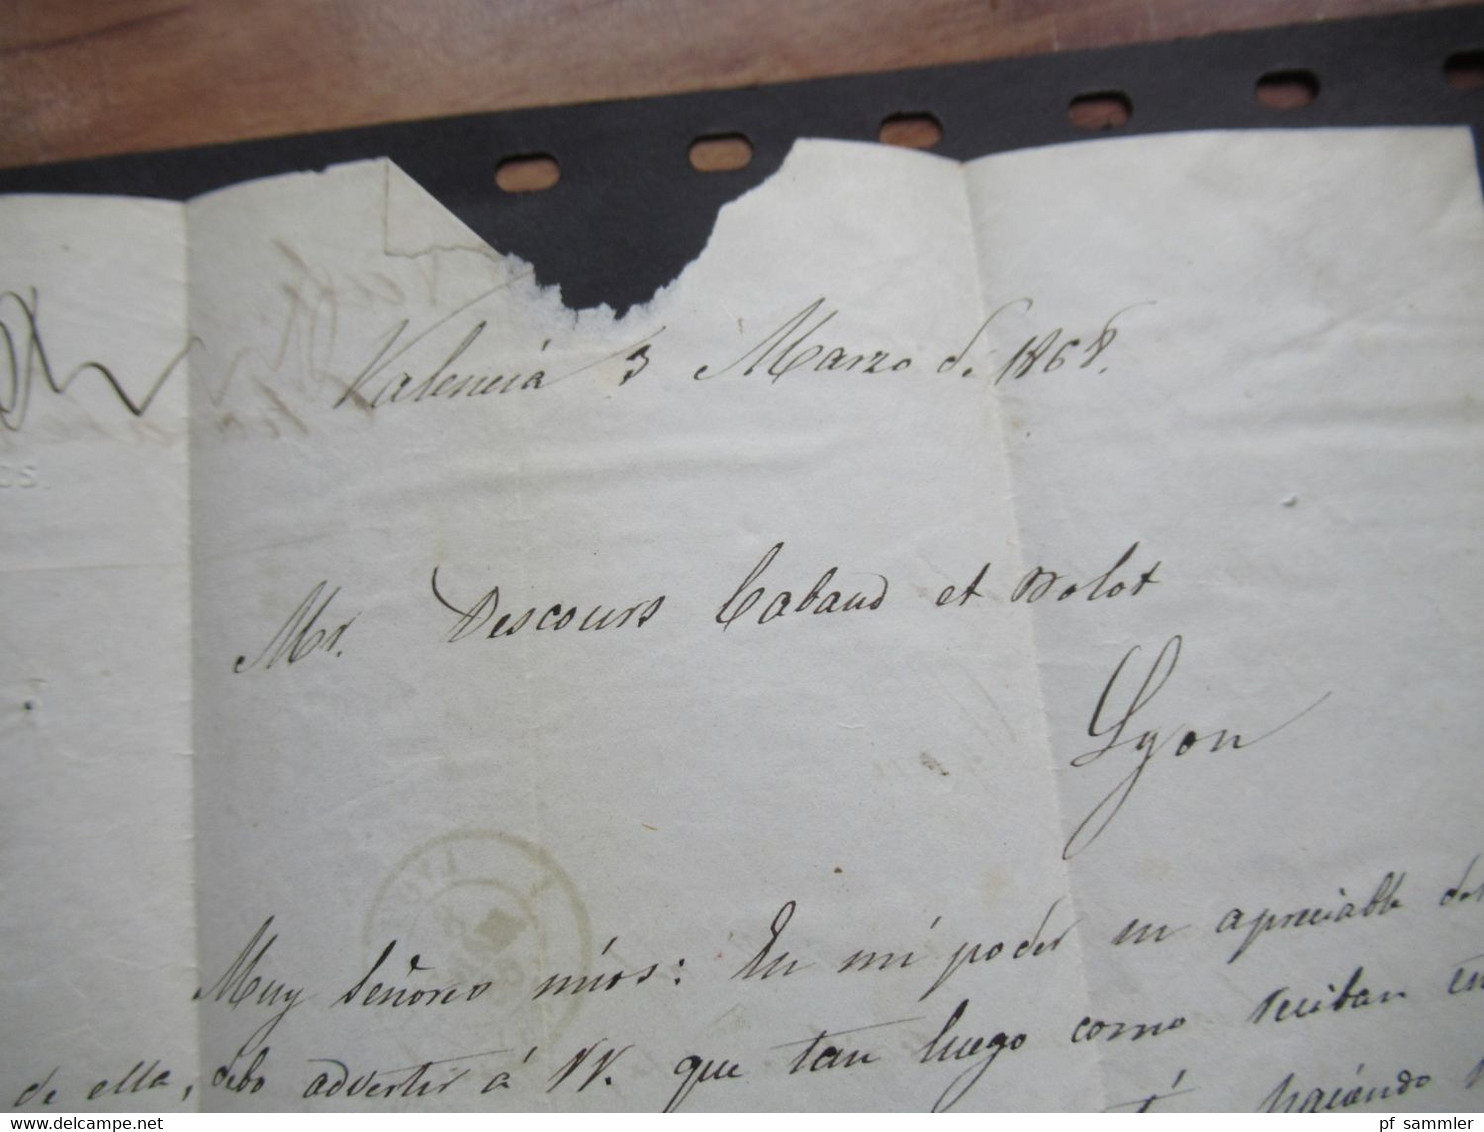 Valencia 3 Marzo de 1868.
CS.
Mr. Descours Cabaud et Dolot
Lyon
Muy Señores mios: En mi poder su apreciable del
de ella, debo advertir á VV. que tan luego como reciban
haciendo
pf sammler
www.delcampe.net